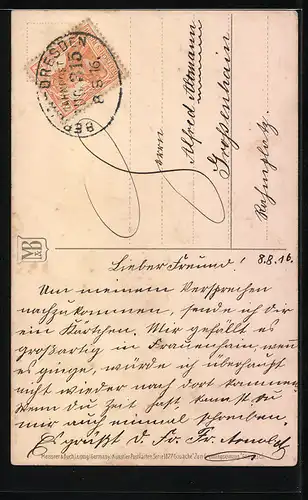 BERLIN-DRESDEN
BAHNPOST
ZUG 215
8 8 16
Herrn
Alfred Altmann
Großenhain
Rahmplatz.
M&B
Lieber Freund! 8.8.16.
Um meinem Versprechen
nachzukommen, sende ich dir
ein Kärtchen. Mir gefällt es
großartig in Frauenhain, wenn
es ginge, würde ich überhaupt
nicht wieder nach dort kommen.
Wenn du Zeit hast, kannst du
mir auch einmal schreiben.
Es grüßt d. Fr. Fr. Arnold.
Meissner & Buch, Leipzig (Germany) Künstler-Postkarten Serie